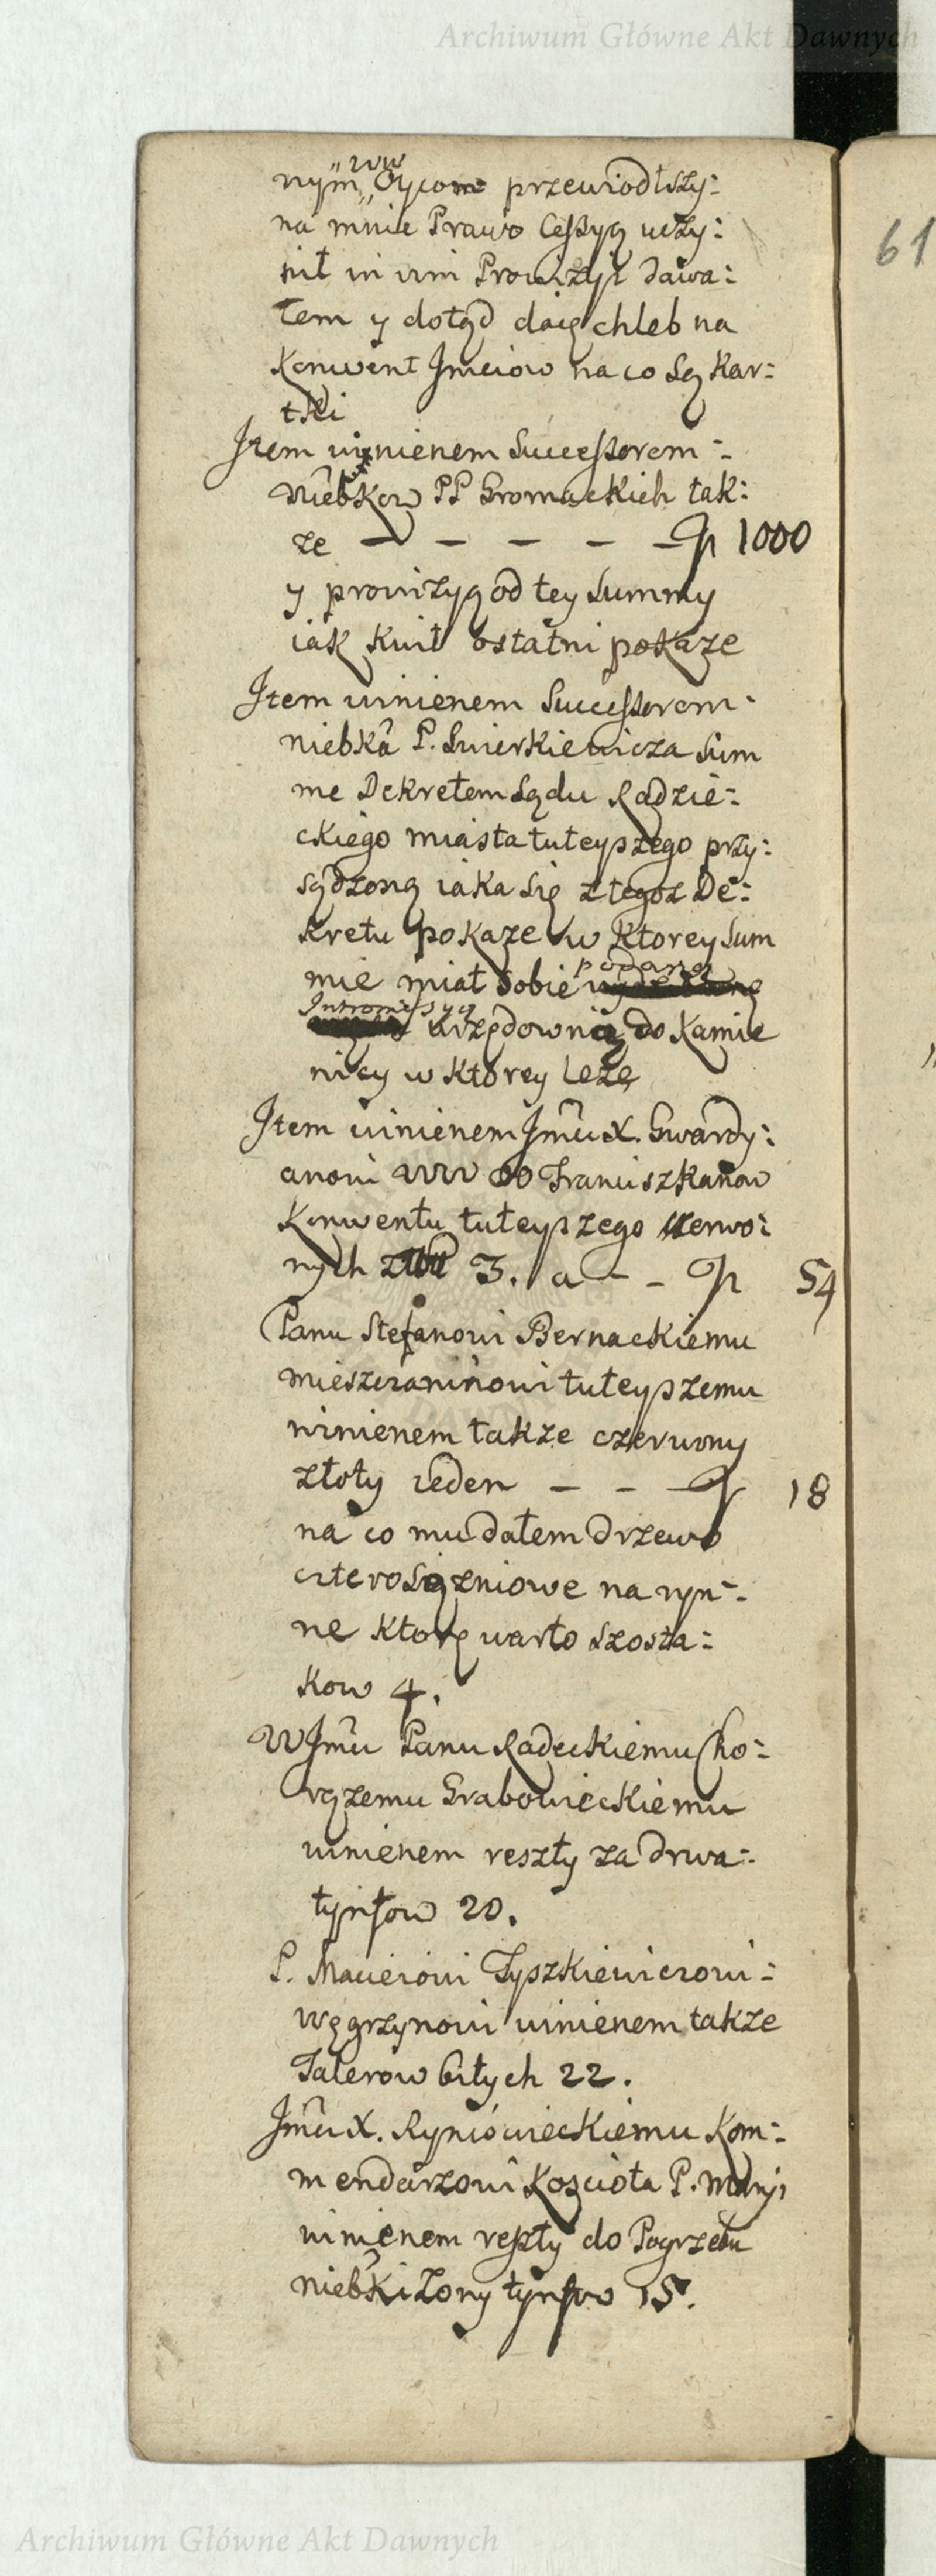 Archiwum Główne Akt Dawnych
nym ww Oycom przewiodłszy:
na mnie Prawo Cessyą uczy:
nił in vim Prowizyi dawa:
łem y dotąd daię chleb na
Konwent Jmciow na co są kar:
tki
61
Item winienem Successorem:
niebkow PP Gromackich tak:
ze — — — — — 1000
y prowizyą od tey Summy
iak kwit ostatni pokaze
Item winienem Successorom:
niebka P. Swierkiewicza Sum
me Dekretem Sądu Radzie:
ckiego miasta tuteyszego przy:
sądzoną iaka się z tegoz De:
kretu pokaze w ktorey Sum
mie miał sobie podaną
Intromissyą urzędownią do Kamie
nicy w ktorey lezę
Item winienem Jmu X. Gwardy:
anowi WW OO Franciszkanow
Konwentu tuteyszego czerwo:
nych 3. a - - 54
Panu Stefanowi Bernackiemu
mieszczaninowi tuteyszemu
winienem takze czerwony
złoty ieden — - — 18
na co mu dałem drzewo
cztero sązniowe na ryn:
ne ktorę warto szosta:
kow 4.
W Jmu Panu Radeckiemu Cho:
rązemu Grabowieckiemu
winienem reszty za drwa:
tynfow 20.
P. Macieiowi Tyszkiewiczowi:
węgrzynowi winienem takze
Talerow bitych 22.
Jmu X. Ryniowieckiemu Kom:
mendarzowi Koscioła P. Maryi
winienem reszty do Pogrzebu
niebki zony tynfow 15.
Archiwum Główne Akt Dawnych